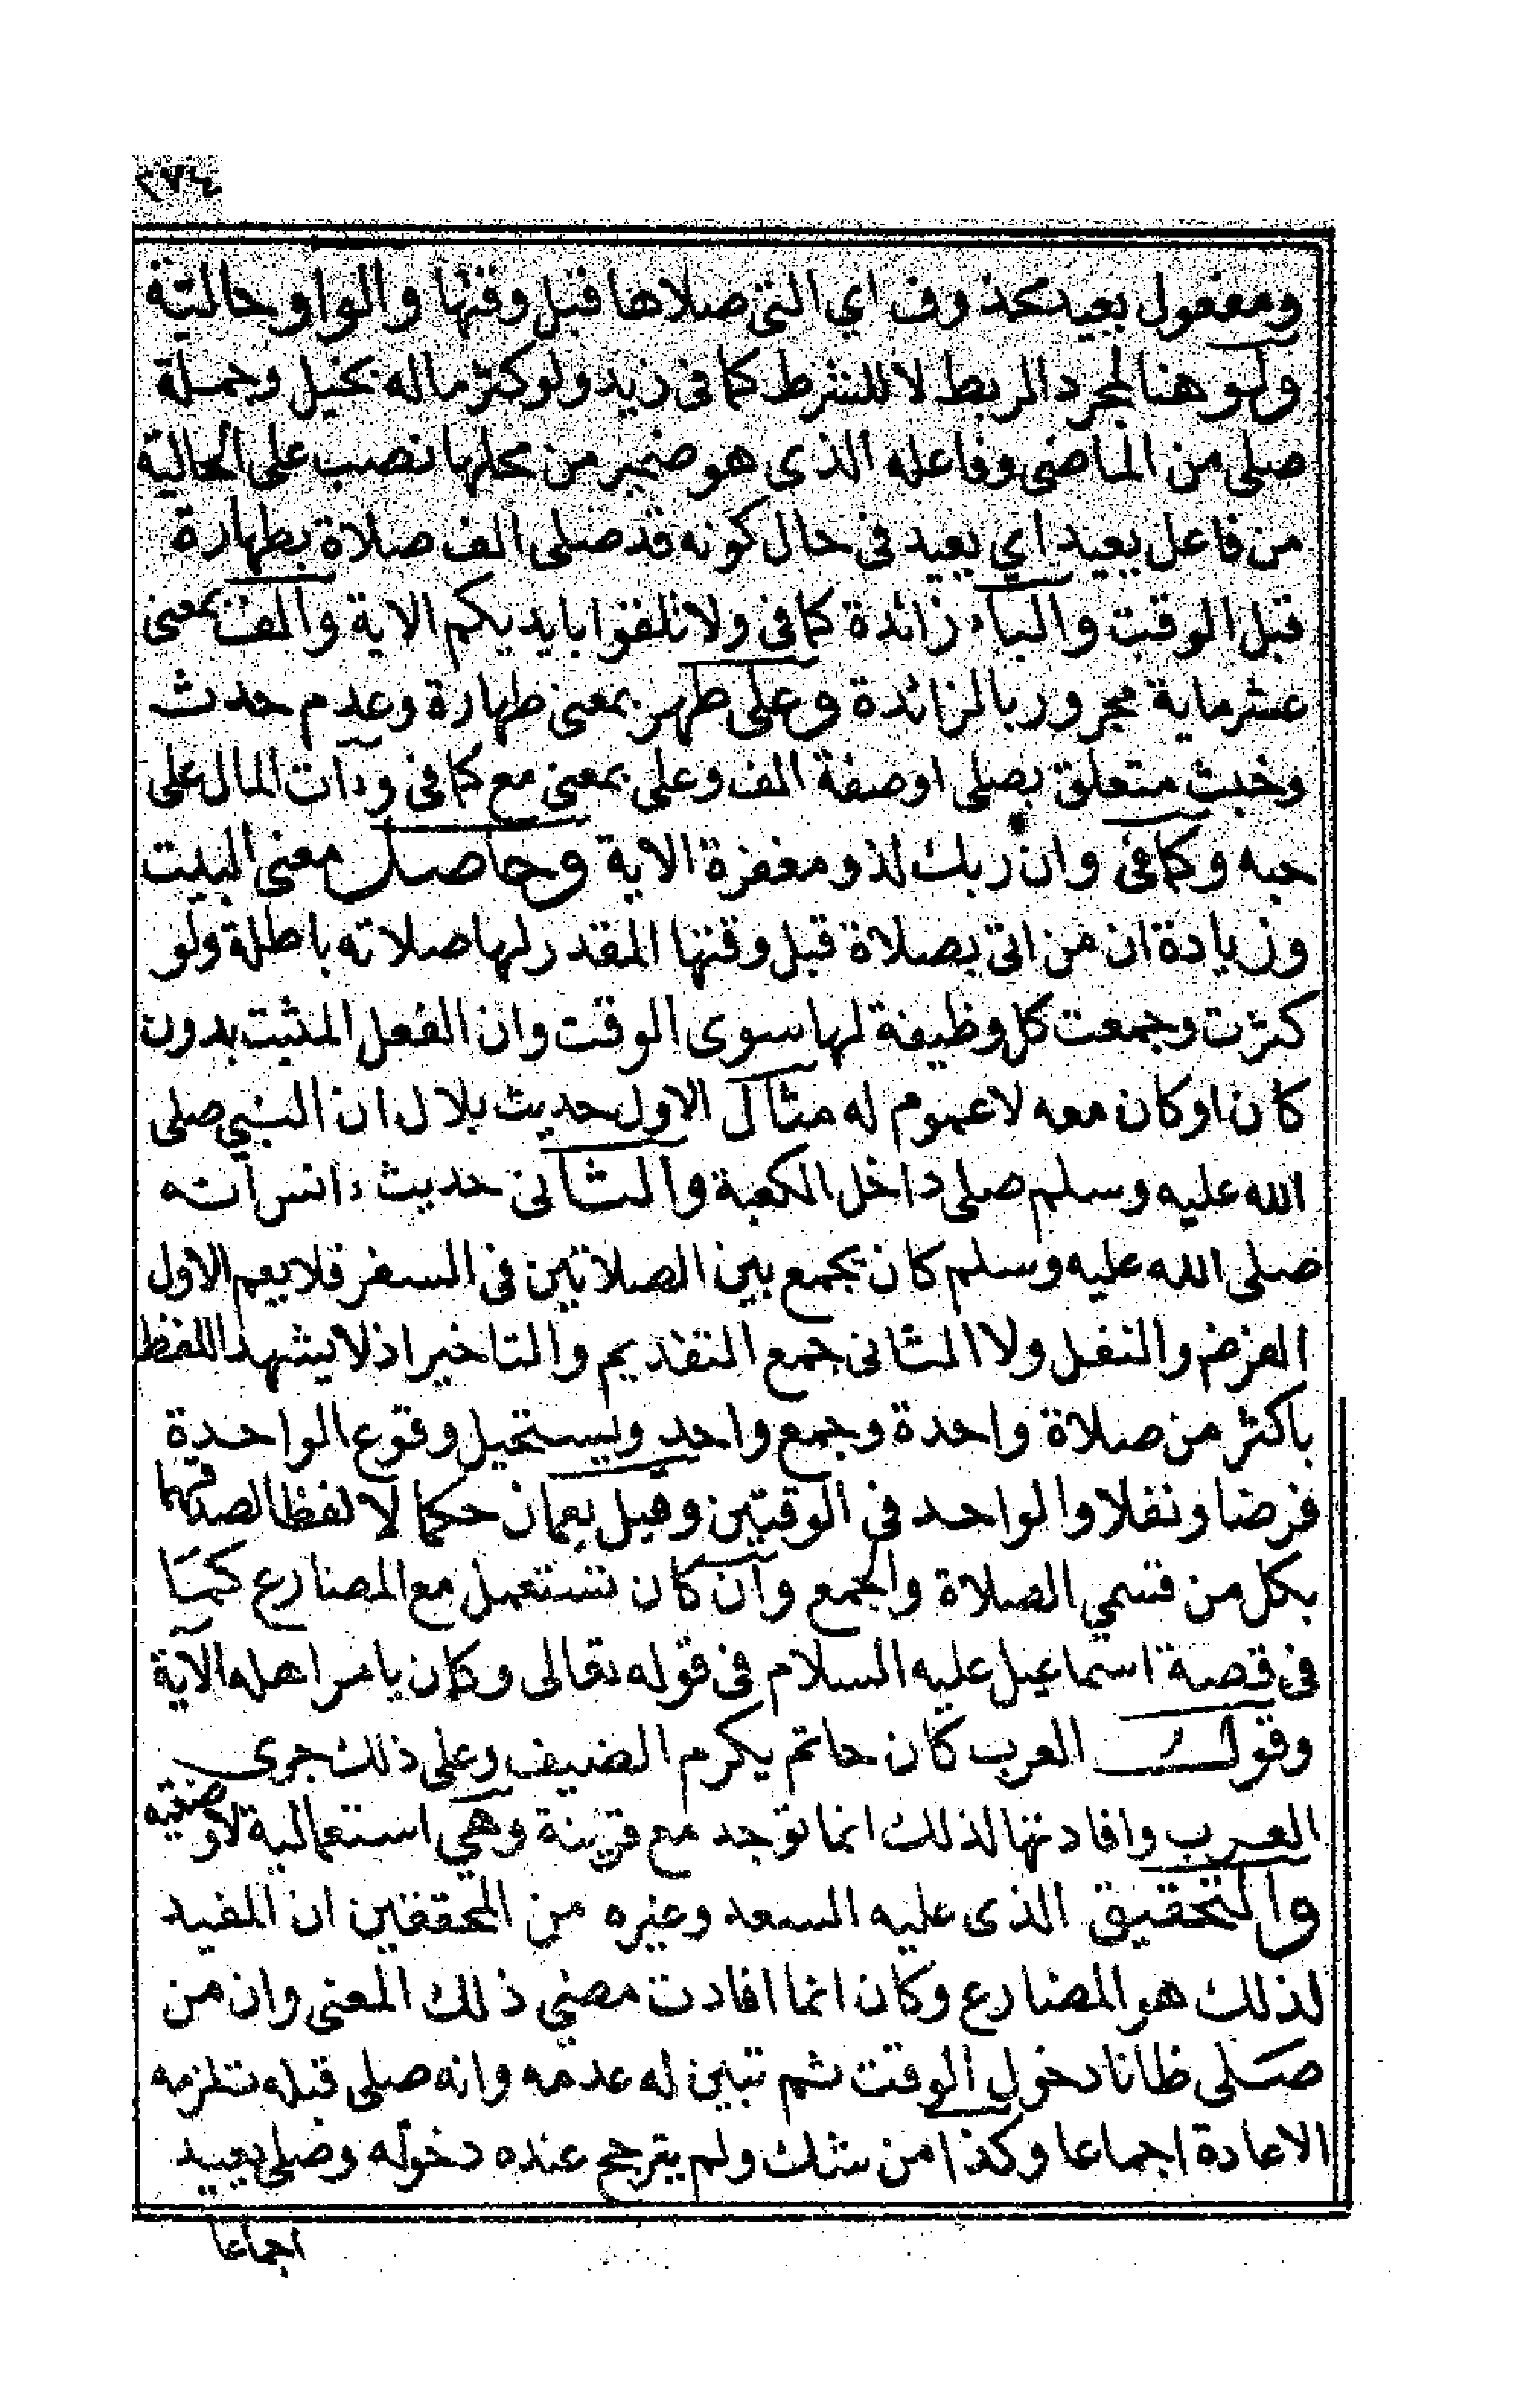 ٢٧٤
ومفعول يعيد محذوف اي التى صلاها قبل وقتها والواو حالية
ولو هنا لمجرد الربط لا للشرط كما فى زيد ولو كثر ماله بخيل وجملة
صلى من الماضى وفاعله الذى هو ضمير من محلها نصب على الحالية
من فاعل يعيد اي يعيد فى حال كونه قد صلى الف صلاة بطهارة
قبل الوقت والباء زائدة كما فى ولا تلقوا بايديكم الاية والف بمعنى
عشر ماية مجرور بالزائدة وعلى طهر بمعنى طهارة وعدم حدث
وخبث متعلق بصلى اوصفة الف وعلى بمعنى مع كما فى وءات المال على
حبه وكما فى وان ربك لذو مغفرة الاية وحاصل معنى البيت
وزيادة ان من اتى بصلاة قبل وقتها المقدر لها صلاته باطلة ولو
كثرت وجمعت كل وظيفة لها سوى الوقت وان الفعل المثبت بدون
كان اوكان معه لا عموم له مثال الاول حديث بلال ان النبي صلى
الله عليه وسلم صلى داخل الكعبة والثانى حديث انس انه
صلى الله عليه وسلم كان يجمع بين الصلاتين فى السفر فلا يعم الاول
الفرض والنفل ولا الثانى جمع التقديم والتاخير اذ لا يشهد اللفظ
باكثر من صلاة واحدة وجمع واحد ويستحيل وقوع الواحدة
فرضا ونفلا والواحد فى الوقتين وقيل يعمان حكما لا لفظا لصدقهما
بكل من قسمي الصلاة والجمع وان كان تستعمل مع المضارع كما
فى قصة اسماعيل عليه السلام فى قوله تعالى وكان يامر اهله الاية
وقول العرب كان حاتم يكرم الضيف وعلى ذلك جرى
العرب وافادتها لذلك انما توجد مع قرينة وهي استعمالية لا وضعية
والتحقيق الذى عليه السعد وغيره من المحققين ان المفيد
لذلك هو المضارع وكان انما افادت مضي ذلك المعنى وان من
صلى ظانا دخول الوقت ثم تبين له عدمه وانه صلى قبله تلزمه
الاعادة اجماعا وكذا من شك ولم يترجح عنده دخوله وصلى يعيد
اجماعا